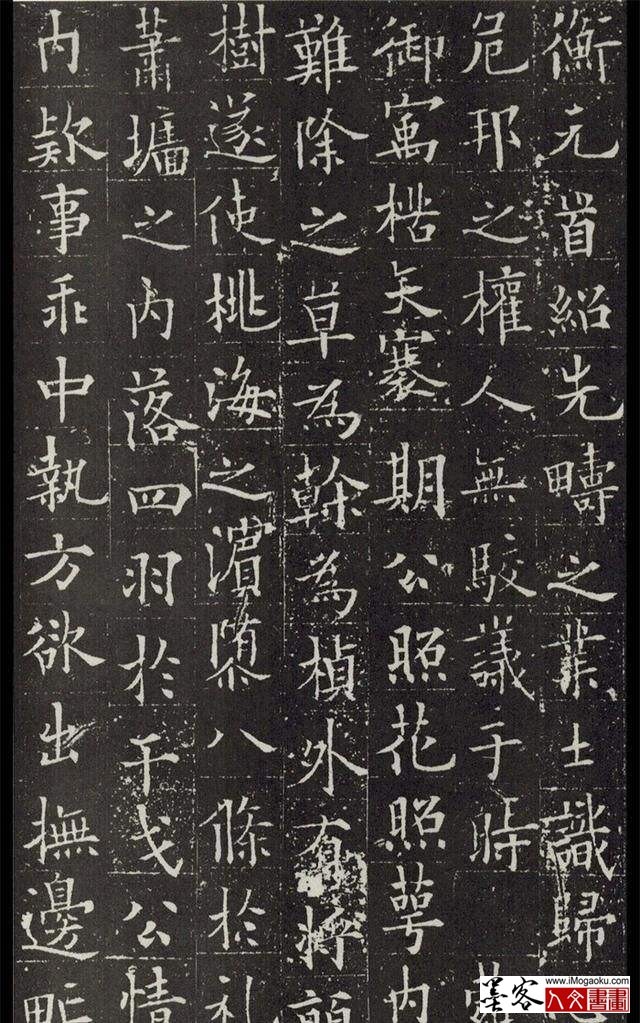 衡元首紹先疇之業士識歸
危邦之權人無駮議于時
御寓楛矢褰期公照花照萼内
難除之草為榦為楨外有將
樹遂使桃海之濱隳八條於礼
蕭墻之内落四羽於干戈公情
内款事乖中執方欲出撫邊甿
墨客
www.iMogaoku.com
人文書畫